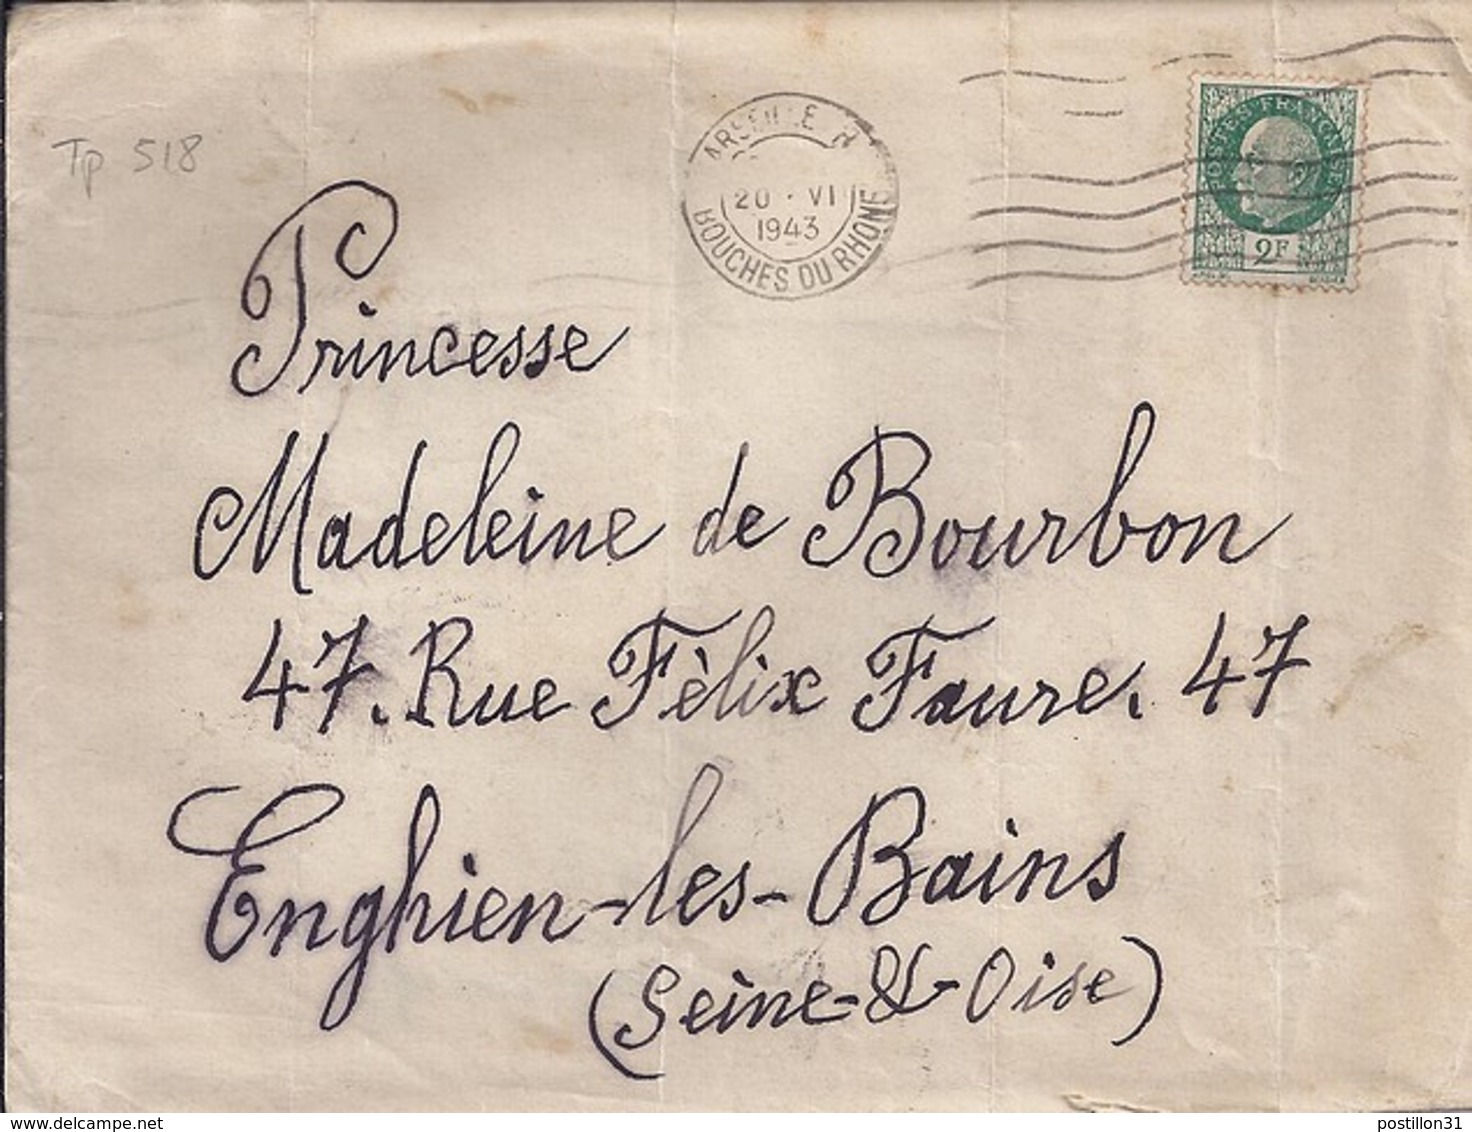 Tp 518
ARSEILLE R
20 · VI
1943
BOUCHES DU RHONE
POSTES FRANÇAISE
2F
Princesse
Madeleine de Bourbon
47. Rue Fèlix Faure. 47
Enghien-les-Bains
(Seine-&-Oise)
delcampe.net
postillon31